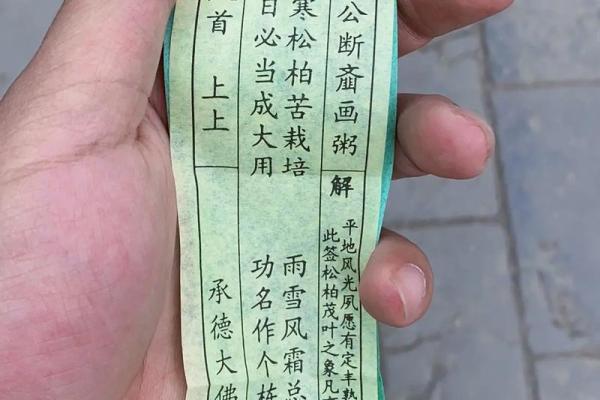 公断齑画粥
解
平地风光夙愿有定丰熟
此签松柏茂叶之象凡
寒松柏苦栽培
雨雪风霜总
日必当成大用
功名作个栋
首 上上
承德大佛